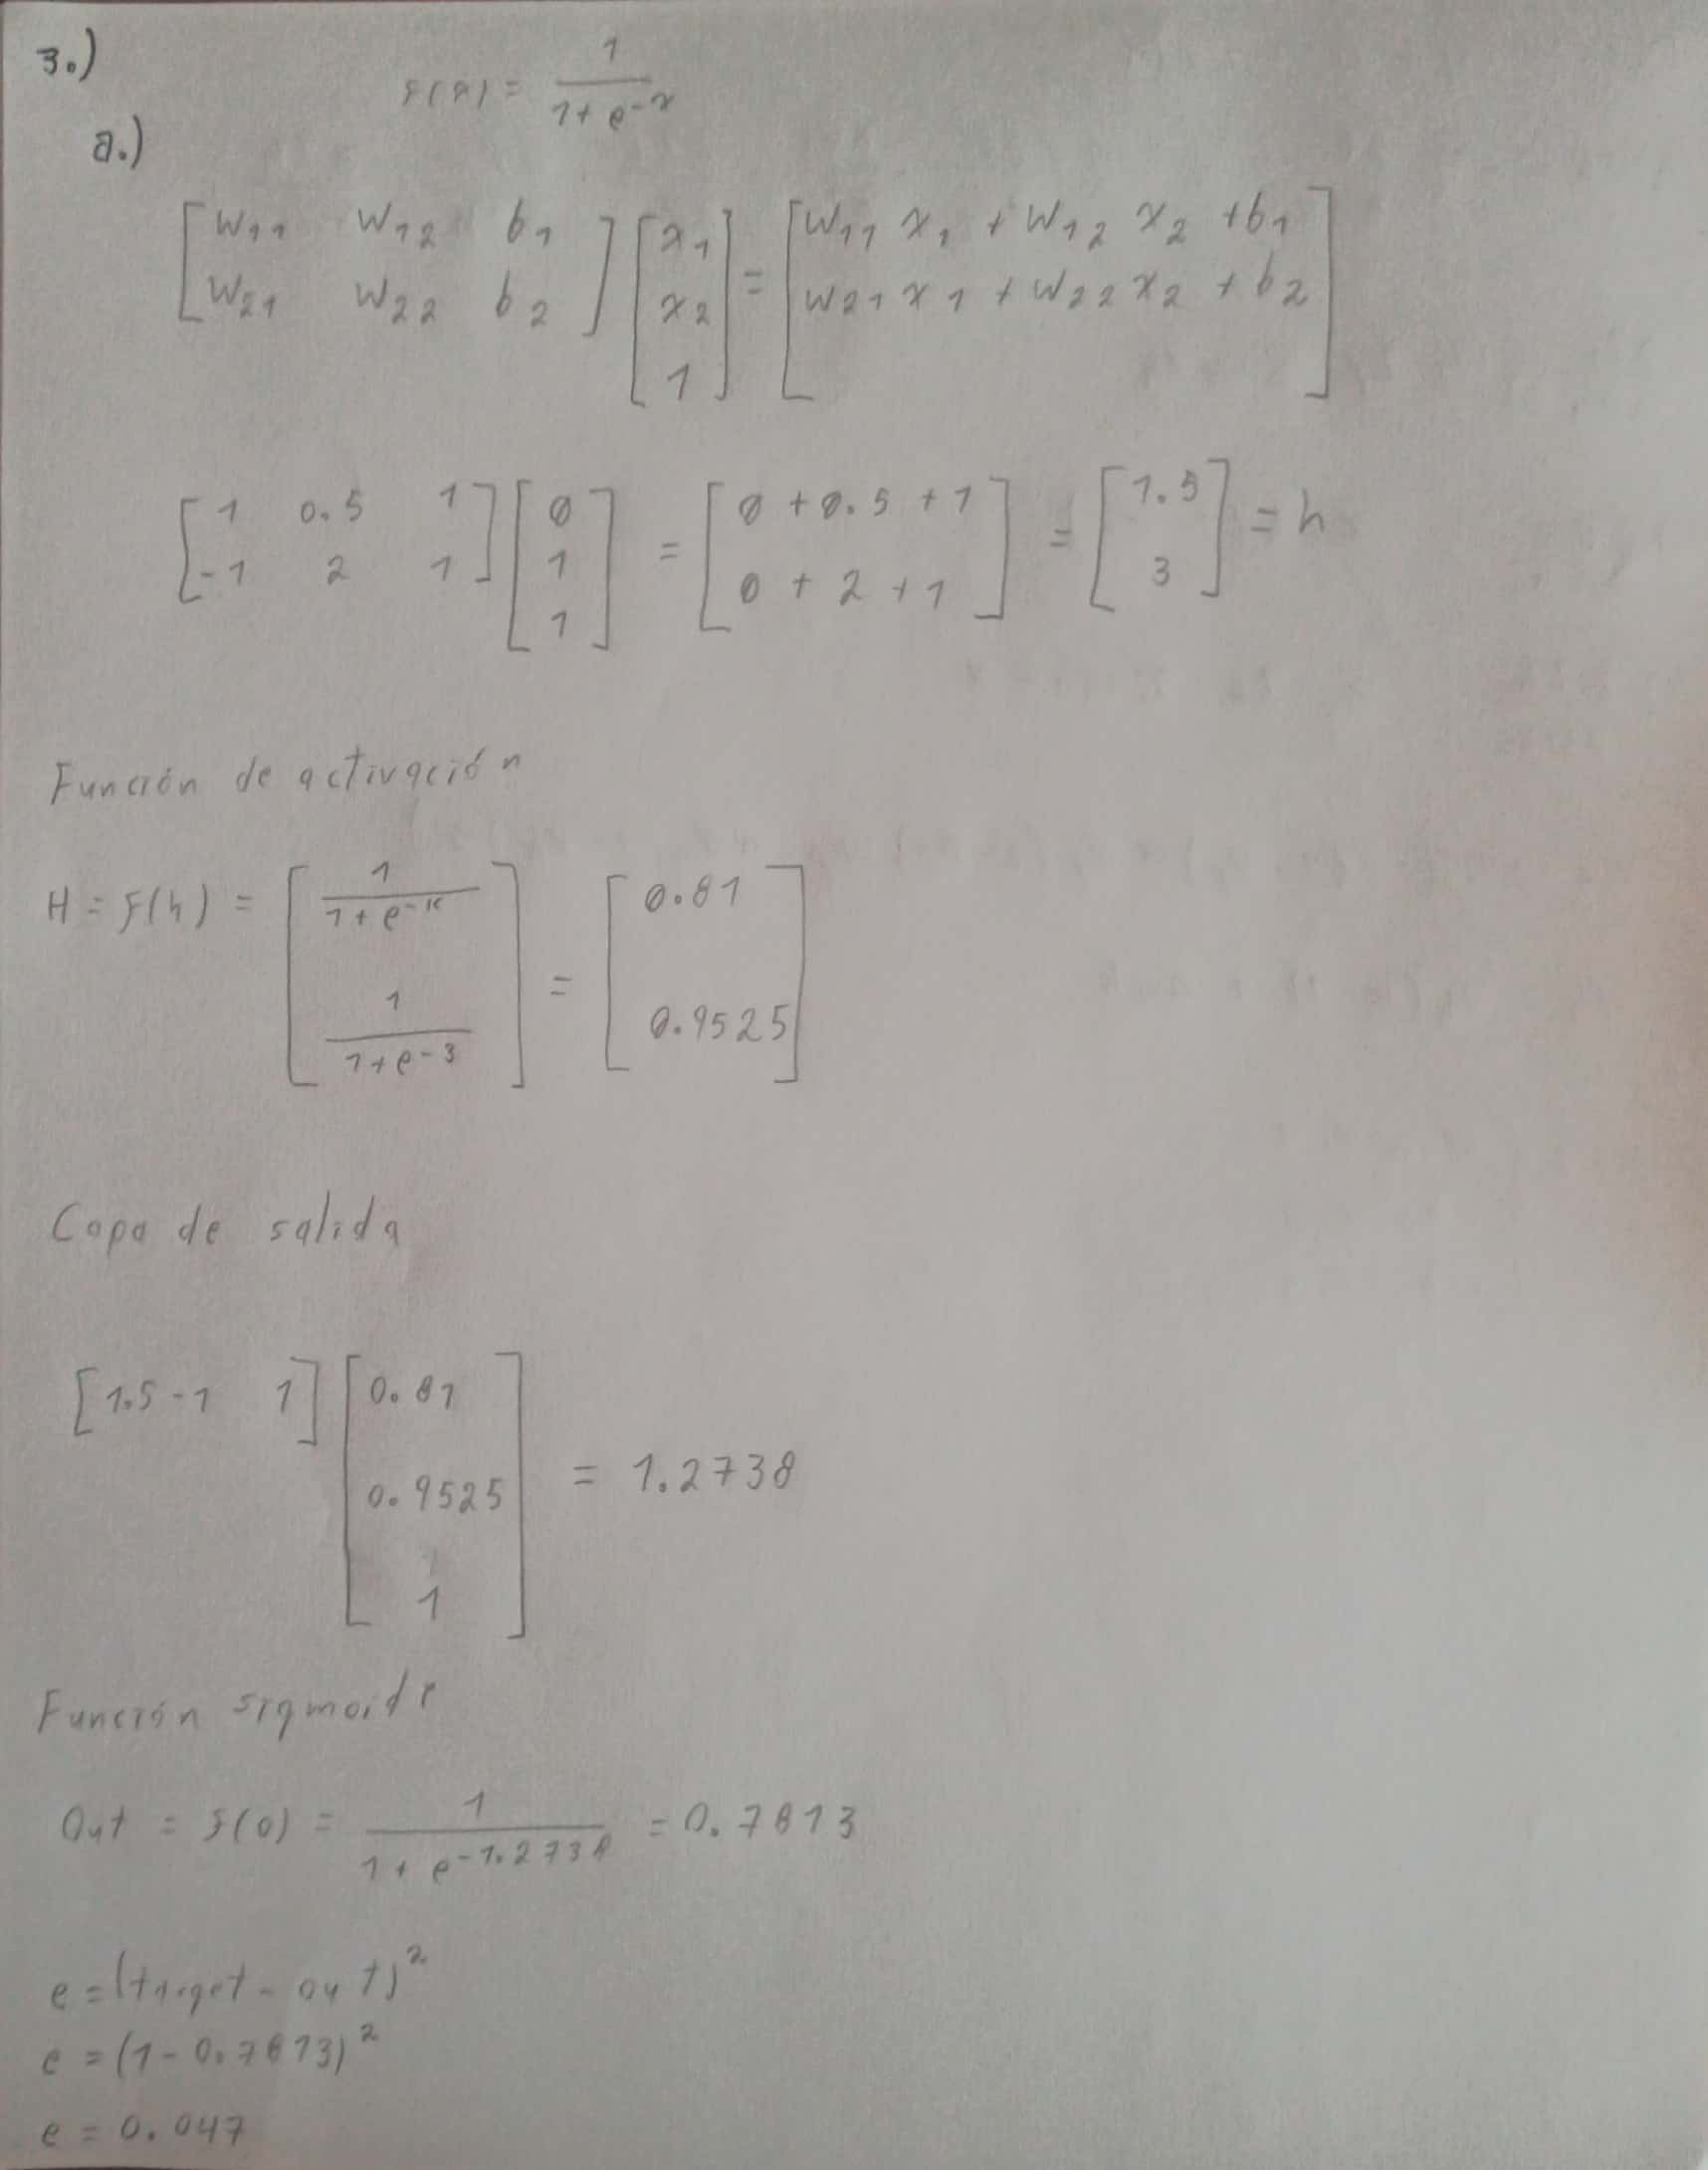 3.)
f(x) = 1 / 1 + e^-x
a.)
[w11 w12 b1; w21 w22 b2] [x1; x2; 1] = [w11 x1 + w12 x2 + b1; w21 x1 + w22 x2 + b2]
[1 0.5 1; -1 2 1] [0; 1; 1] = [0 + 0.5 + 1; 0 + 2 + 1] = [1.5; 3] = h
Función de activación
H = f(h) = [1 / 1 + e^-; 1 / 1 + e^-3] = [0.81; 0.9525]
Capa de salida
[1.5 -1 1] [0.81; 0.9525; 1] = 1.2738
Función sigmoide
Out = f(o) = 1 / 1 + e^-1.2738 = 0.7813
e = (target - out)^2
e = (1 - 0.7813)^2
e = 0.047